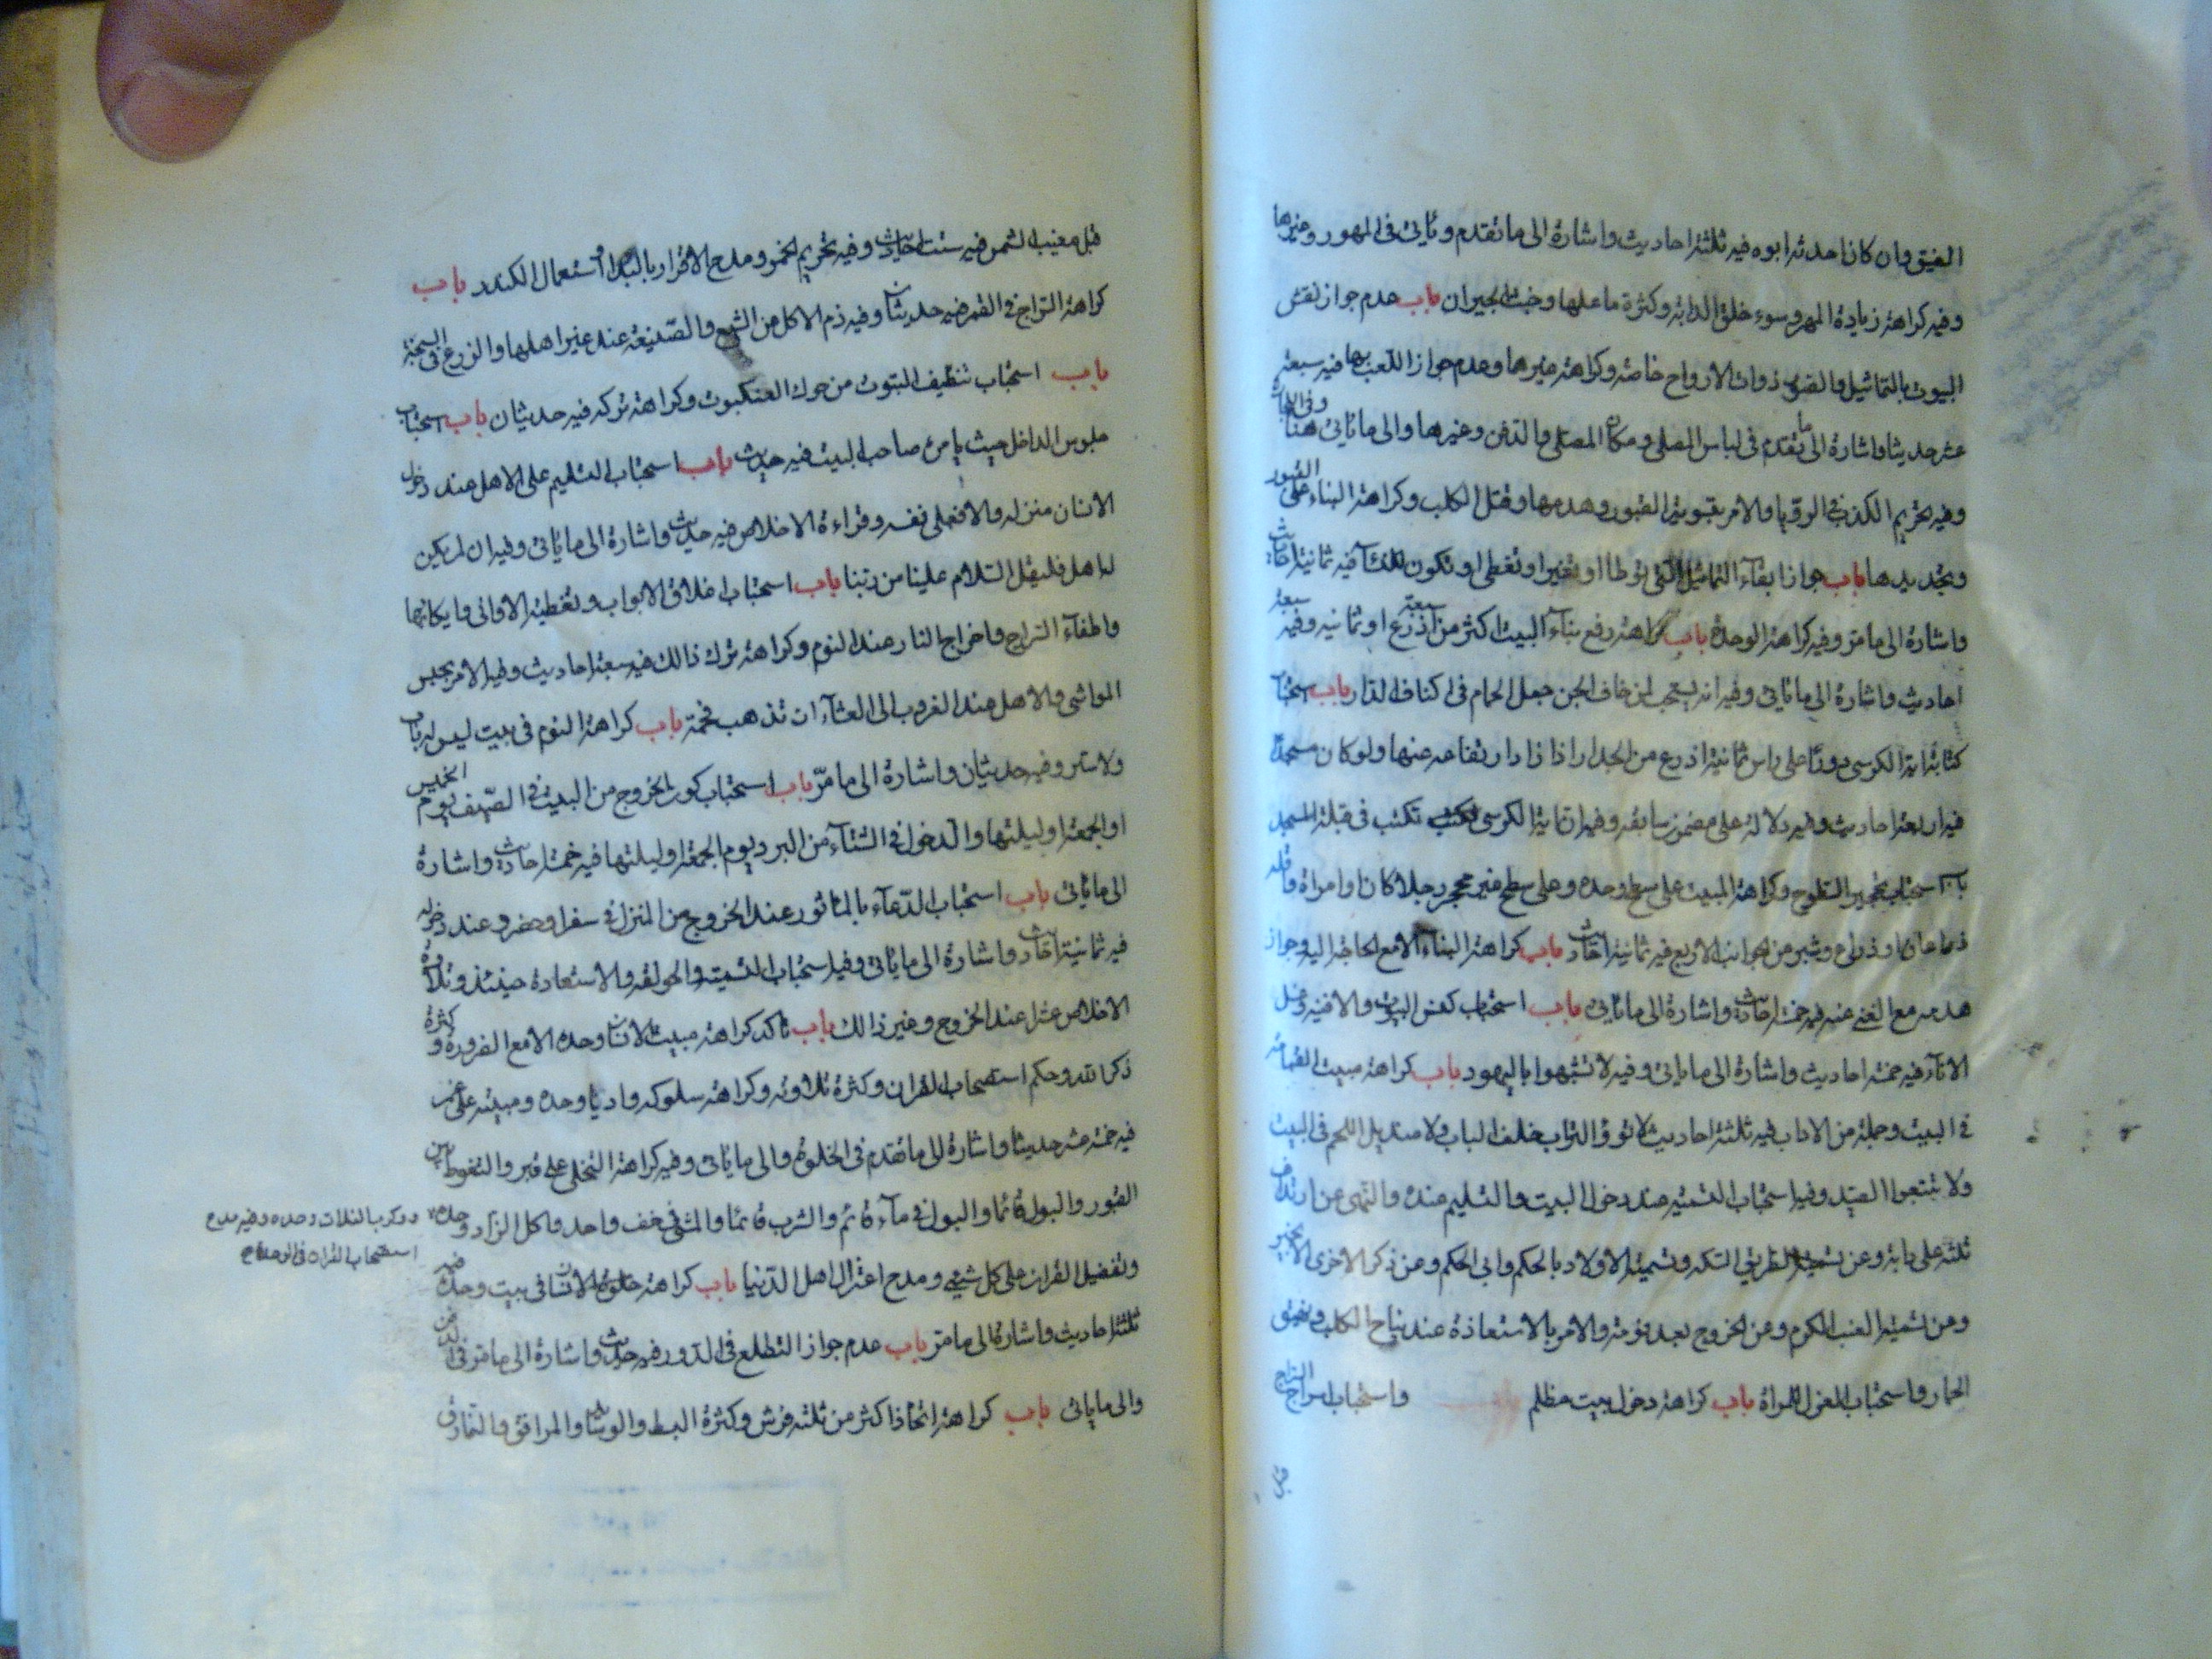 الضيق وان كان احدثه ابوه فيه ثلثة احاديث واشارة الى ما تقدم وياتى فى المهور وغيرها
وفيه كراهة زيادة المهر وسوء خلق الدابة وكثرة ما عليها وخبث الجيران باب عدم جواز نقش
البيوت بالتماثيل والصور ذوات الارواح خاصة وكراهة غيرها وعدم جواز اللعب بها فيه سبعة
عشر حديثا واشارة الى ما تقدم فى لباس المصلى ومكان المصلى والدفن وغيرها والى ما ياتى هنا
وفيه تحريم الكذب فى الرؤيا والامر بتسوية القبور وهدمها وقتل الكلب وكراهة البناء على القبور
وتجديدها باب جواز ابقاء التماثيل التى توطأ او تغير او تغطى او تكون للنساء فيه ثمانية احاديث
واشارة الى ما مر وفيه كراهة الوحدة باب كراهة رفع بناء البيت اكثر من سبعة اذرع او ثمانية وفيه سبعة
احاديث واشارة الى ما ياتى وفيه انه يستحب لمن خاف الجن جعل الحمام فى اكناف الدار باب استحباب
كتابة اية الكرسى دورا على راس ثمانية اذرع من الجدار اذا زاد ارتفاعه عنها ولو كان مسجدا
فيه اربعة احاديث وفيه دلالة على مضمون سابقه وفيه ان اية الكرسى تكتب فى قبلة المسجد
باب استحباب تحجير السطوح وكراهة المبيت على سطح وحده وعلى سطح غير محجر رجلا كان او امراة واقله
ذراعان او ذراع وشبر من الجوانب الاربع فيه ثمانية احاديث باب كراهة البناء الا مع الحاجة اليه وجواز
هدمه مع الغنى عنه فيه خمسة احاديث واشارة الى ما ياتى باب استحباب كنس البيوت والافنية وغسل
الاناء فيه خمسة احاديث واشارة الى ما ياتى وفيه لا تشبهوا باليهود باب كراهة مبيت القمامة
فى البيت وجملة من الاداب فيه ثلثة احاديث لا تووا التراب خلف الباب ولا منديل اللحم فى البيت
ولا تتبعوا الصيد وفيه استحباب التسمية عند دخول البيت والتسليم عنده والنهى عن ارتداف
ثلثة على دابة وعن تسمية الطريق السكة وتسمية الاولاد بالحكم وابى الحكم وعن ذكر الاخرى الا بخير
وعن تسمية العنب الكرم وعن الخروج بعد نومة والامر بالاستعاذة عند نباح الكلب ونهيق
الحمار واستحباب المغزل للمراة باب كراهة دخول بيت مظلم واستحباب اسراج السراج
قبل مغيب الشمس فيه ستة احاديث وفيه تحريم الخمر ومدح الاقرار بالبداء واستعمال الكندر باب
كراهة السراج فى القمر فيه حديثان وفيه ذم الاكل من الشبع والصنيعة عند غير اهلها والزرع فى السبخة
باب استحباب تنظيف البيوت من حوك العنكبوت وكراهة تركه فيه حديثان باب استحباب
جلوس الداخل حيث يامره صاحب البيت فيه حديث باب استحباب التسليم على الاهل عند دخول
الانسان منزله والا فعلى نفسه وقراءة الاخلاص فيه حديث واشارة الى ما ياتى وفيه ان لم يكن
له اهل فليقل السلام علينا من ربنا باب استحباب اغلاق الابواب وتغطية الاوانى وايكائها
واطفاء السراج واخراج النار عند النوم وكراهة ترك ذالك فيه سبعة احاديث وفيه الامر بحبس
المواشى والاهل عند الغروب الى العشاء ان تذهب فحمته باب كراهة النوم فى بيت ليس له باب
ولا ستر وفيه حديثان واشارة الى ما مر باب استحباب كون الخروج من البيت فى الصيف يوم الخميس
او الجمعة او ليلتها والدخول فى الشتاء من البرد يوم الجمعة او ليلتها فيه خمسة احاديث واشارة
الى ما ياتى باب استحباب الدعاء بالماثور عند الخروج من المنزل فى سفر او حضر وعند دخوله
فيه ثمانية احاديث واشارة الى ما ياتى وفيه استحباب التسمية والحولقة والاستعاذة حينئذ وتلاوة
الاخلاص عشرا عند الخروج وغير ذالك باب تاكد كراهة مبيت الانسان وحده الا مع الضرورة وكثرة
ذكر الله وحكم استصحاب القران وكثرة تلاوته وكراهة سلوكه واديا وحده ومبيته على غمر
فيه خمسة عشر حديثا واشارة الى ما تقدم فى الخلوة والى ما ياتى وفيه كراهة التخلى على قبر والتغوط بين
القبور والبول قائما والبول فى ماء قائم والشرب قائما والمشى فى خف واحد واكل الزاد وحده
وركوب الفلات وحده وفيه مدح
استصحاب القران فى الوحدة
وتفضيل القران على كل شيئ ومدح اعتزال اهل الدنيا باب كراهة خلوة الانسان فى بيت وحده فيه
ثلثة احاديث واشارة الى ما مر باب عدم جواز التطلع فى الدور فيه حديث واشارة الى ما مر فى الدفن
والى ما ياتى باب كراهة اتخاذ اكثر من ثلثة فرش وكثرة البسط والوسائد والمرافق والنمارق